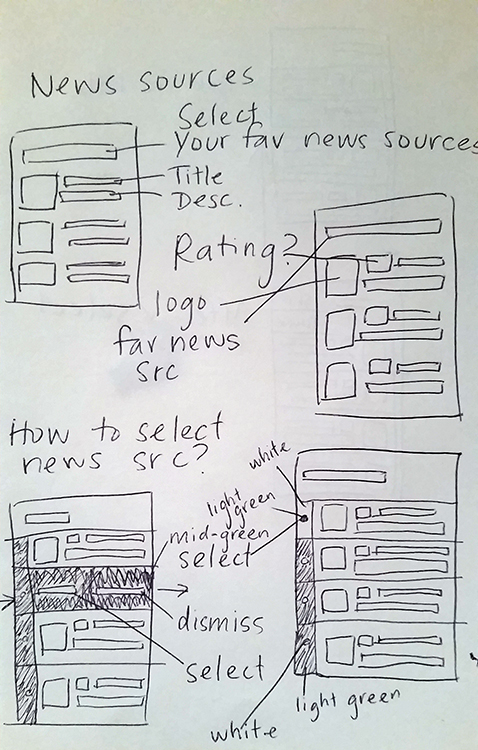 News sources
Select
Your fav news sources
Title
Desc.
Rating?
logo
fav news
src
How to select
news src?
white
light
green
mid-green
select
dismiss
select
light green
white